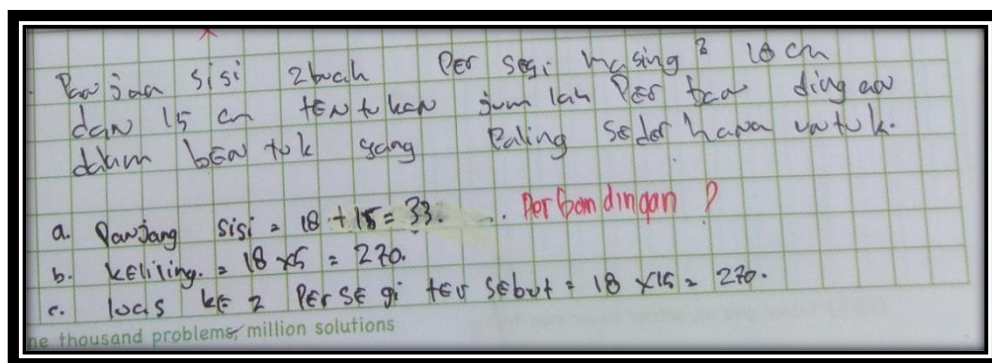 Panjaan sisi 2buah Per segi masing² 18 cm
dan 15 cm tENtukan jumlah PEr ban dingan
dalam bEN tuk yang Paling seder hana untuk.
a. Panjang sisi = 18 + 15 = 33. .. Perbandingan ?
b. kEliling. = 18 x5 = 270.
c. luas kE 2 PErsE gi tEr sEbut = 18 x15 = 270.
ne thousand problems, million solutions